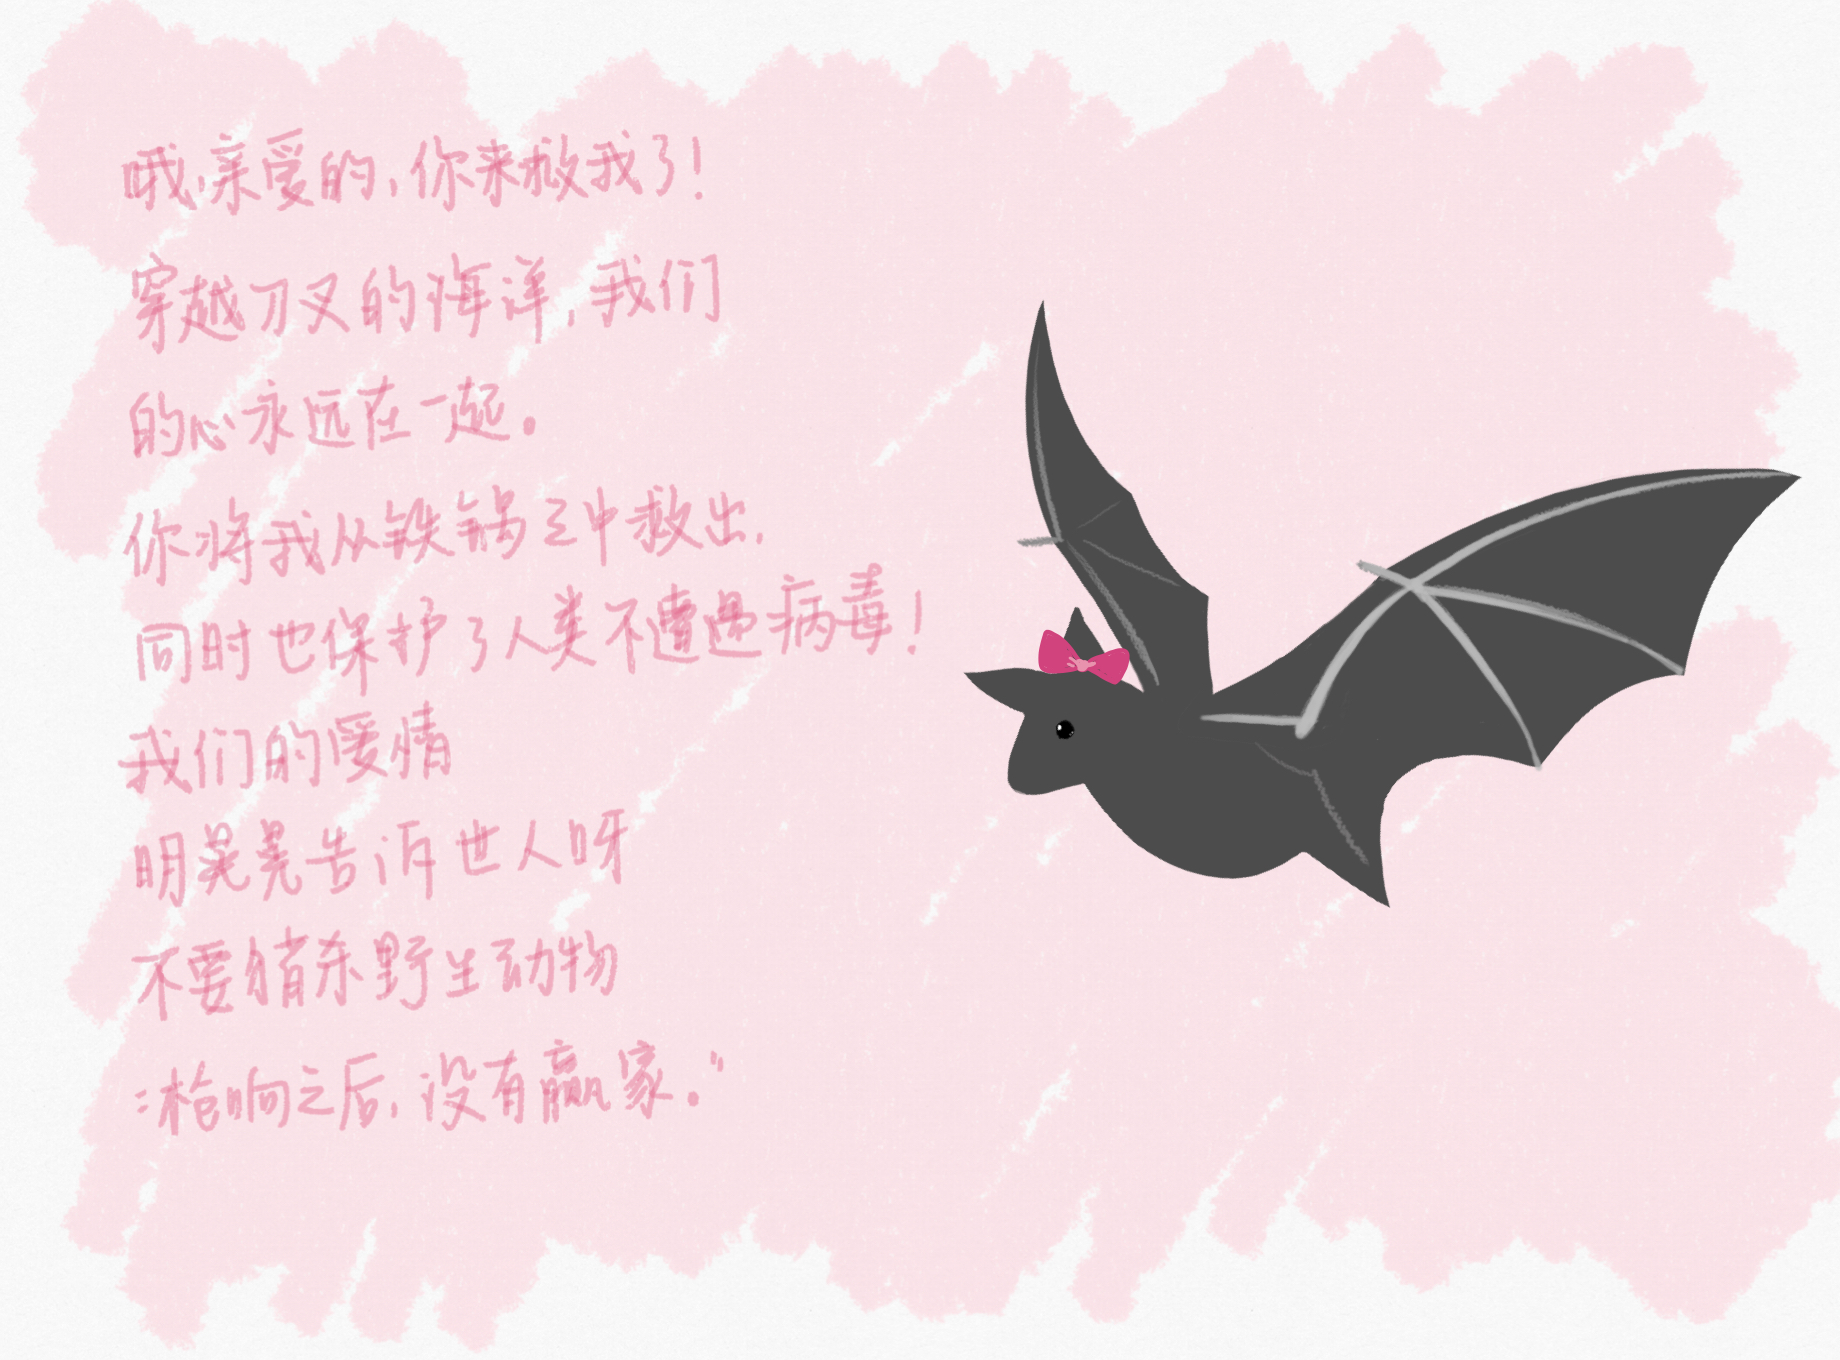 哦,亲爱的,你来救我了!
穿越刀叉的海洋,我们
的心永远在一起。
你将我从铁锅之中救出,
同时也保护了人类不遭遇病毒!
我们的爱情
明晃晃告诉世人呀
不要猎杀野生动物
“枪响之后,没有赢家。”